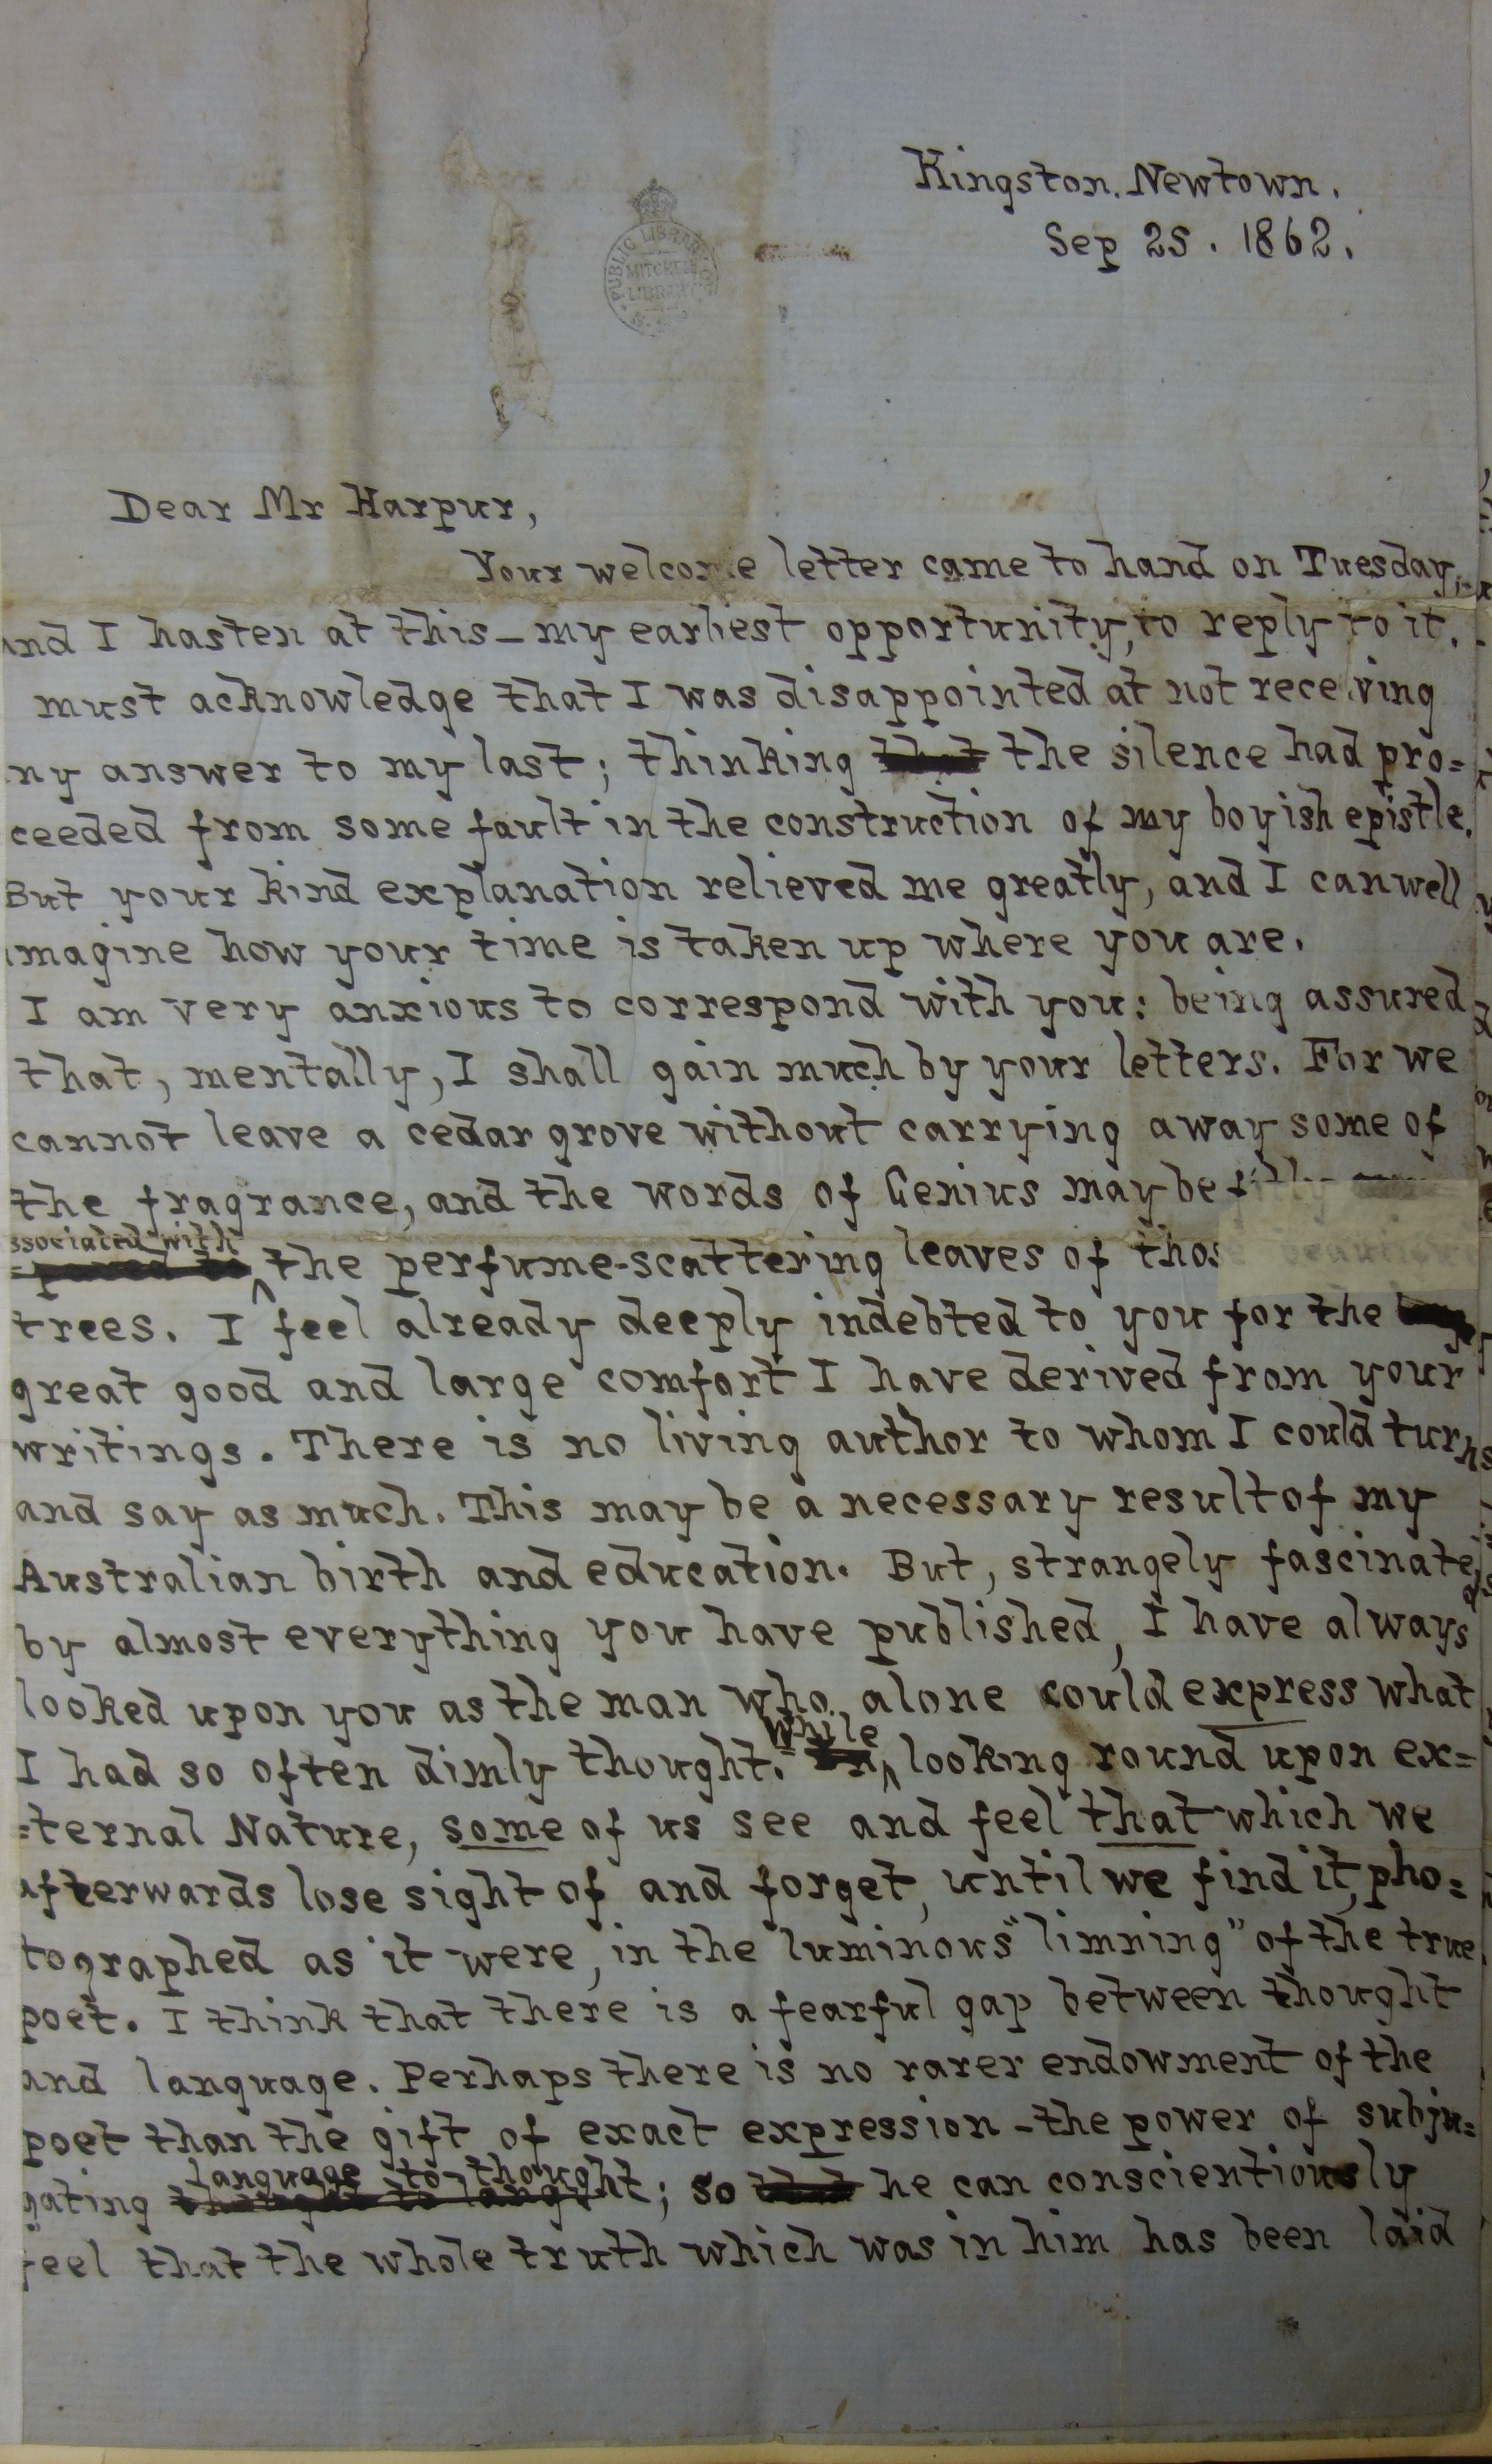 Kingston. Newtown.
Sep 25. 1862.
PUBLIC LIBRARY
MITCHELL
LIBRARY
Dear Mr Harpur,
Your welcome letter came to hand on Tuesday,
and I hasten at this – my earliest opportunity, to reply to it.
must acknowledge that I was disappointed at not receiving
ny answer to my last; thinking that the silence had pro=
ceeded from some fault in the construction of my boyish epistle.
But your kind explanation relieved me greatly, and I can well
imagine how your time is taken up where you are.
I am very anxious to correspond with you: being assured
that, mentally, I shall gain much by your letters. For we
cannot leave a cedar grove without carrying away some of
the fragrance, and the words of Genius may be fitly
ssociated with
the perfume-scattering leaves of those
trees. I feel already deeply indebted to you for the
great good and large comfort I have derived from your
writings. There is no living author to whom I could turn
and say as much. This may be a necessary result of my
Australian birth and education. But, strangely fascinated
by almost everything you have published, I have always
looked upon you as the man who alone could express what
while
I had so often dimly thought. In looking round upon ex=
=ternal Nature, some of us see and feel that which we
afterwards lose sight of and forget, until we find it, pho=
tographed as it were, in the luminous "limning" of the true
poet. I think that there is a fearful gap between thought
and language. Perhaps there is no rarer endowment of the
poet than the gift of exact expression – the power of subju=
language to thought
gating; so that he can conscientiously
feel that the whole truth which was in him has been laid